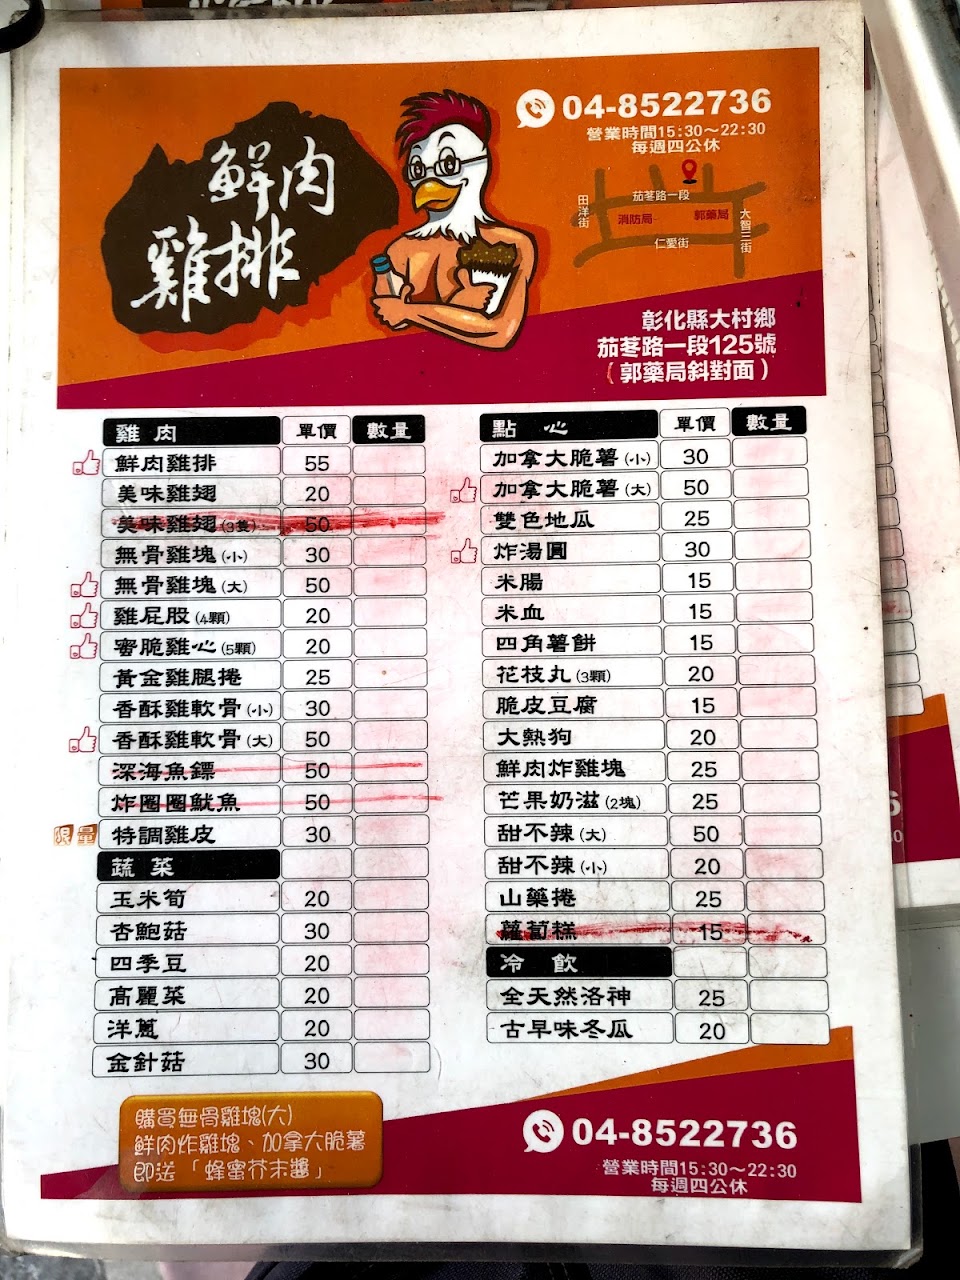 鮮肉
雞排
04-8522736
營業時間15:30～22:30
每週四公休
茄苳路一段
田洋街
消防局
郭藥局
大智三街
仁愛街
彰化縣大村鄉
茄苳路一段125號
(郭藥局斜對面)
雞肉 單價 數量
鮮肉雞排 55
美味雞翅 20
美味雞翅(3隻) 50
無骨雞塊(小) 30
無骨雞塊(大) 50
雞屁股(4顆) 20
蜜脆雞心(5顆) 20
黃金雞腿捲 25
香酥雞軟骨(小) 30
香酥雞軟骨(大) 50
深海魚鏢 50
炸圈圈魷魚 50
限量 特調雞皮 30
蔬菜
玉米筍 20
杏鮑菇 30
四季豆 20
高麗菜 20
洋蔥 20
金針菇 30
點心 單價 數量
加拿大脆薯(小) 30
加拿大脆薯(大) 50
雙色地瓜 25
炸湯圓 30
米腸 15
米血 15
四角薯餅 15
花枝丸(3顆) 20
脆皮豆腐 15
大熱狗 20
鮮肉炸雞塊 25
芒果奶滋(2塊) 25
甜不辣(大) 50
甜不辣(小) 20
山藥捲 25
蘿蔔糕 15
冷飲
全天然洛神 25
古早味冬瓜 20
購買無骨雞塊(大)
鮮肉炸雞塊、加拿大脆薯
即送「蜂蜜芥末醬」
04-8522736
營業時間15:30～22:30
每週四公休